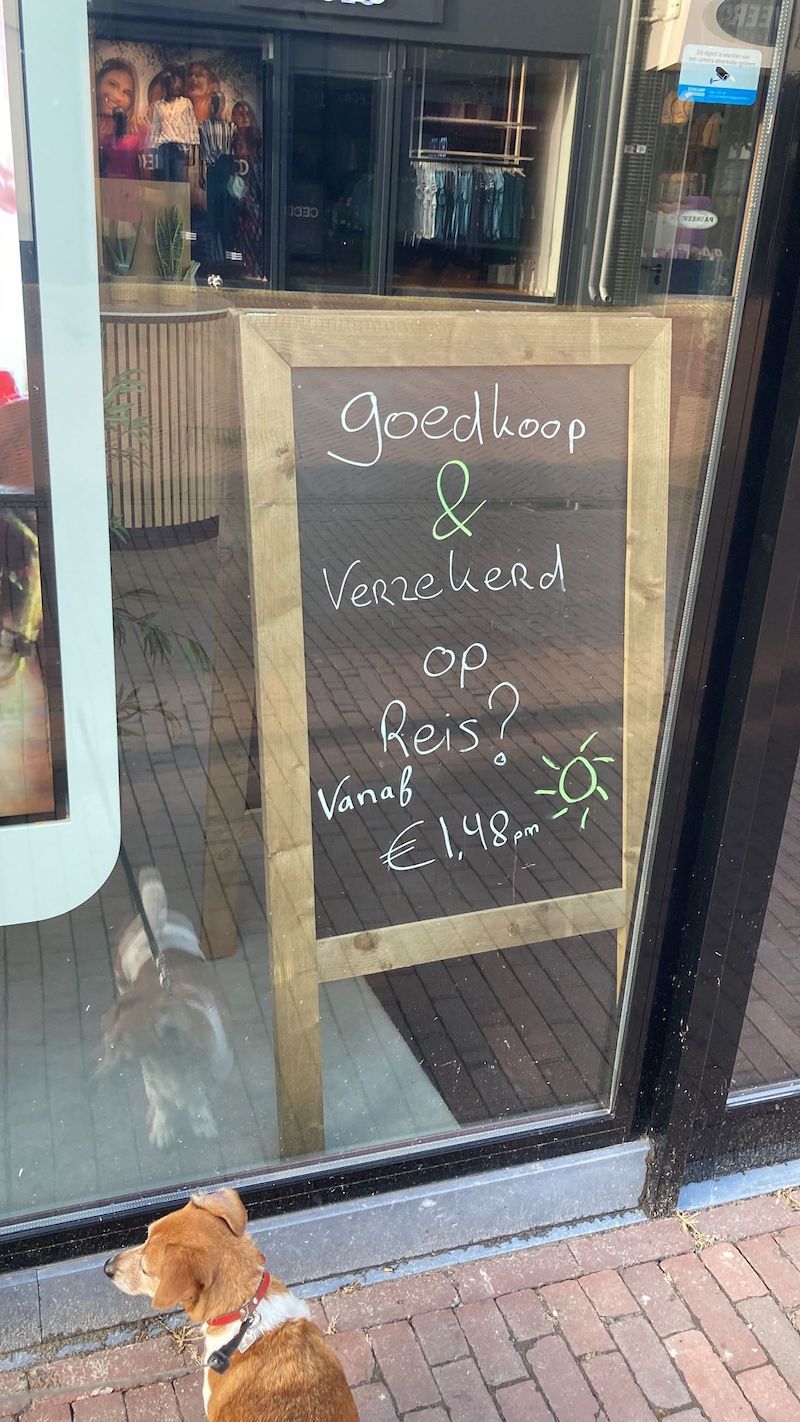 goedkoop
&
Verzekerd
op
Reis?
Vanaf
€1,48 pm